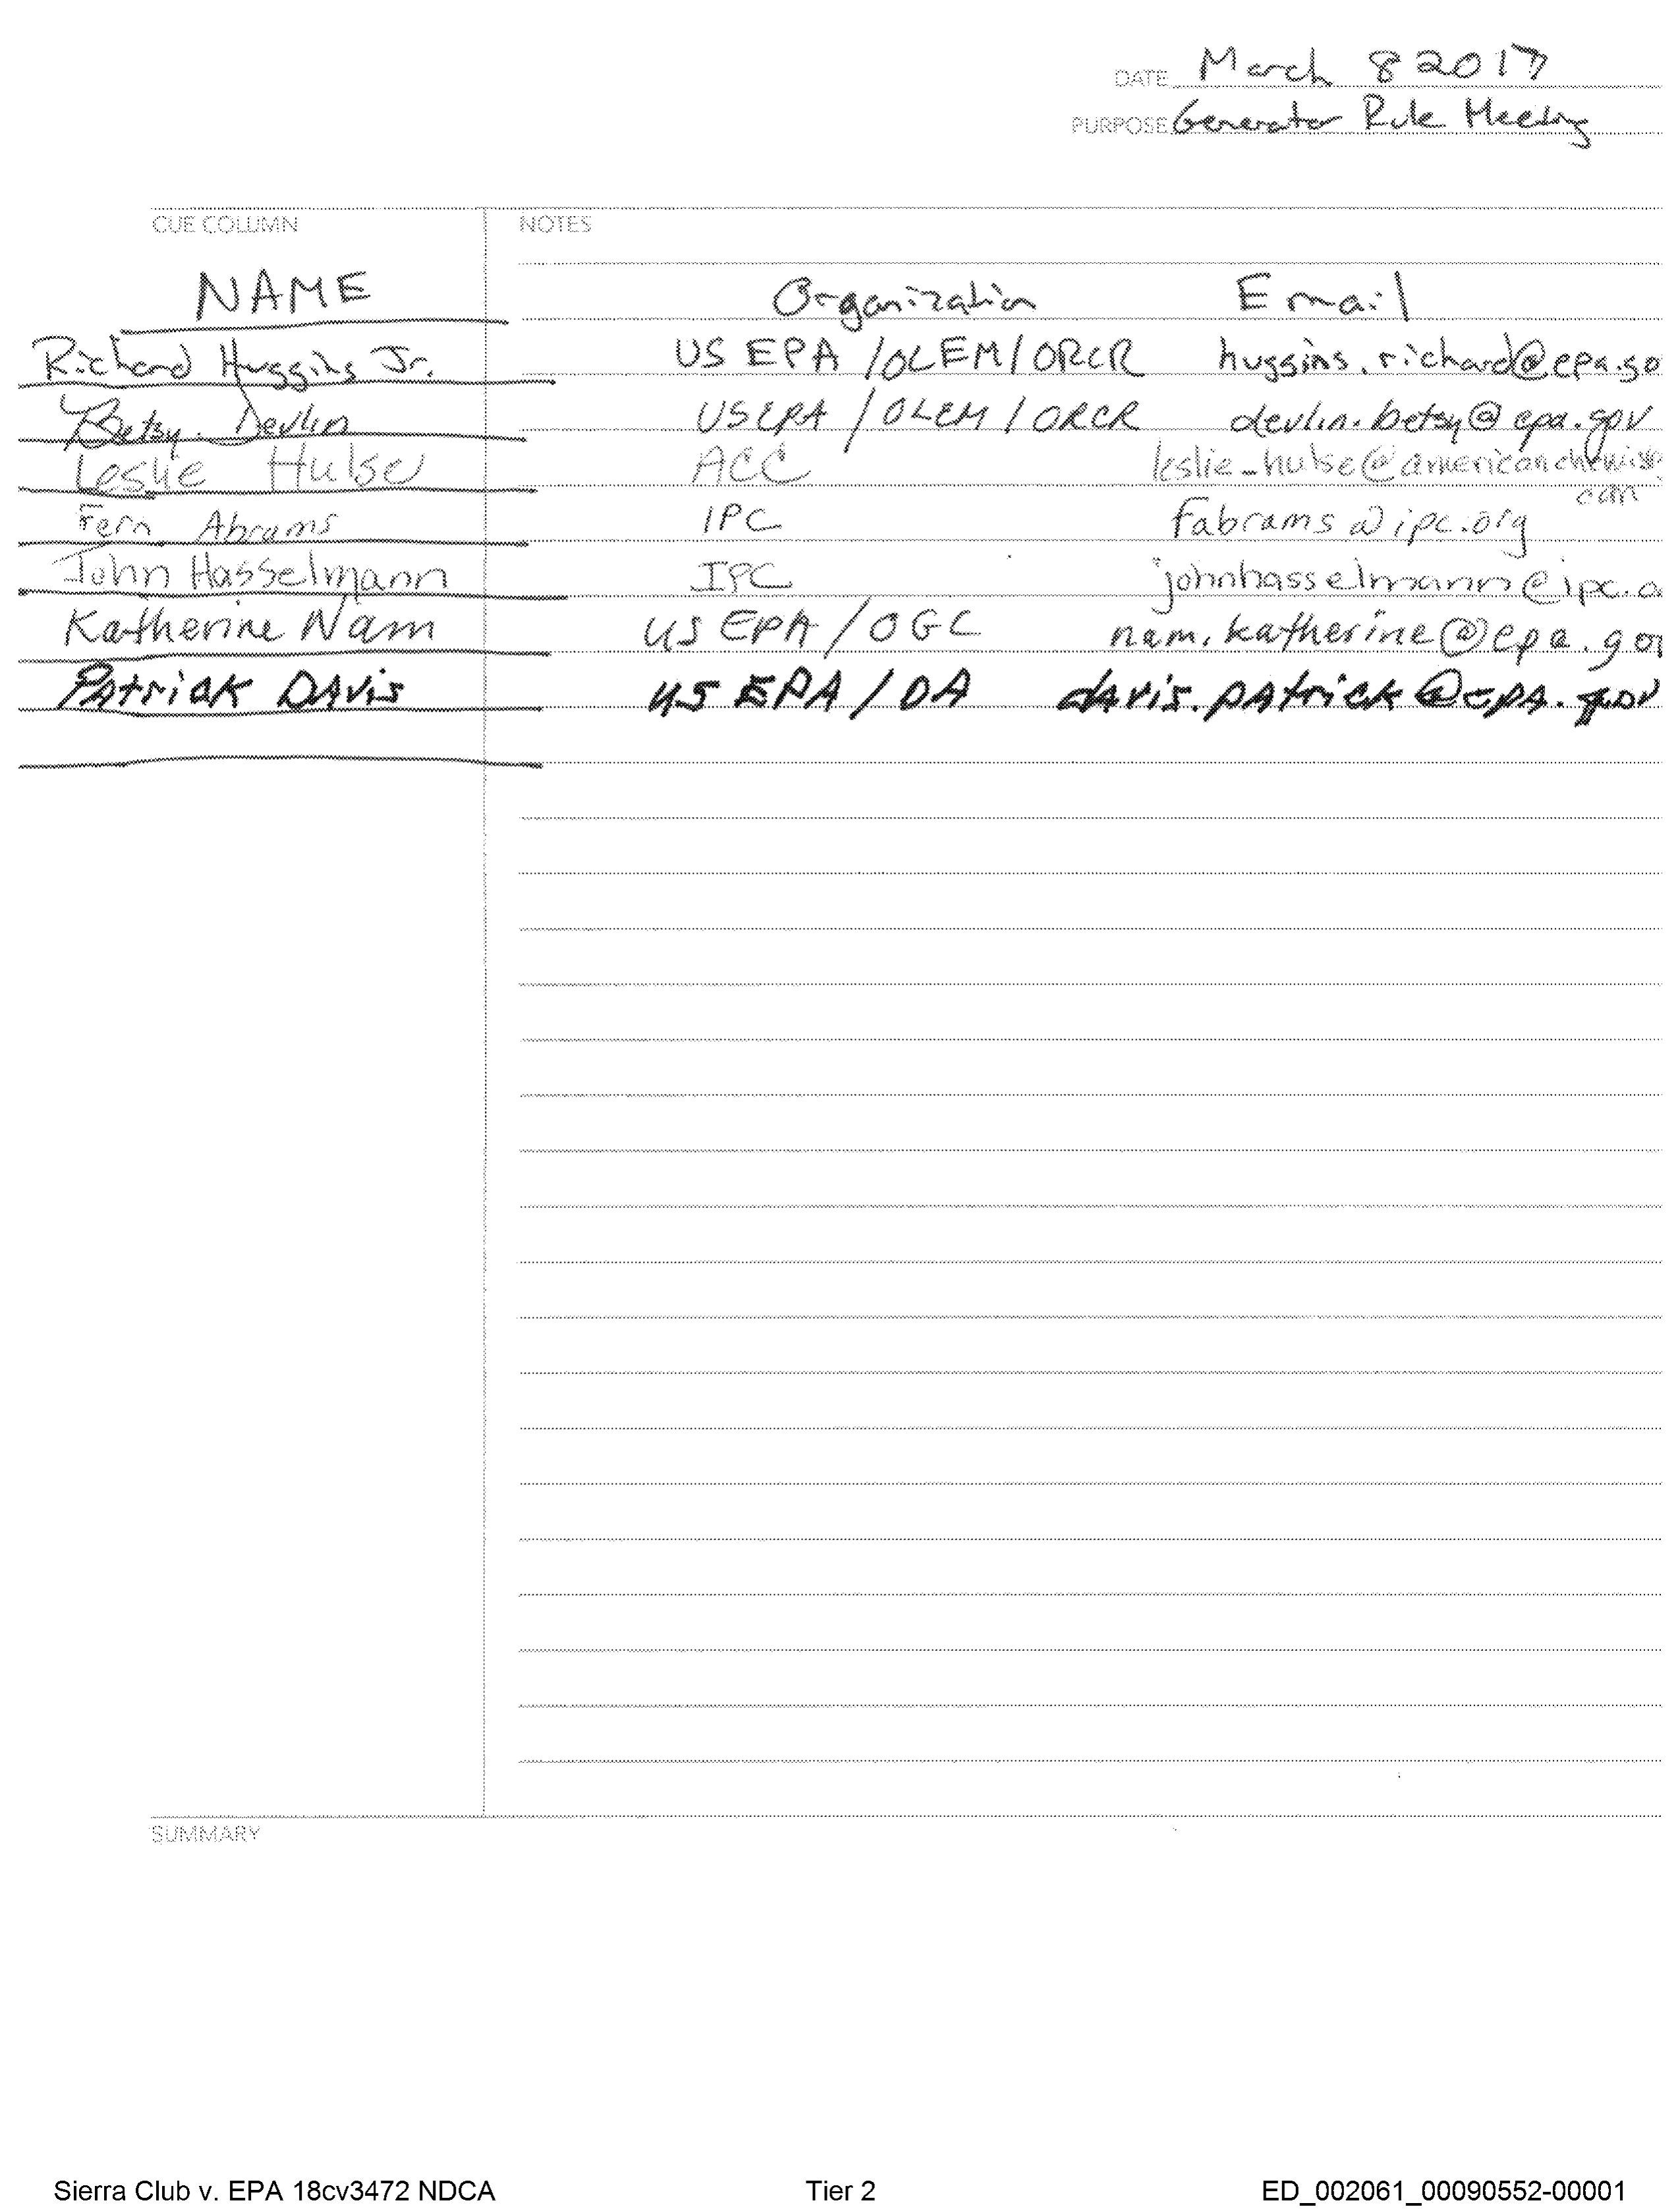 DATE March 8 2017
PURPOSE Generator Rule Meeting
CUE COLUMN NOTES
NAME Organization Email
Richard Huggins Jr. US EPA /OLEM/ORCR huggins.richard@epa.go
Betsy Devlin USEPA /OLEM/ORCR devlin.betsy@epa.gov
Leslie Hulse ACC leslie_hulse@americanchemis
Fern Abrams IPC fabrams@ipc.org
John Hasselmann IPC johnhasselmann@ipc.o
Katherine Nam US EPA/OGC nam.katherine@epa.gov
PAtrick DAvis US EPA/OA dAvis.pAtrick@EPA.gov
SUMMARY
Sierra Club v. EPA 18cv3472 NDCA Tier 2 ED_002061_00090552-00001